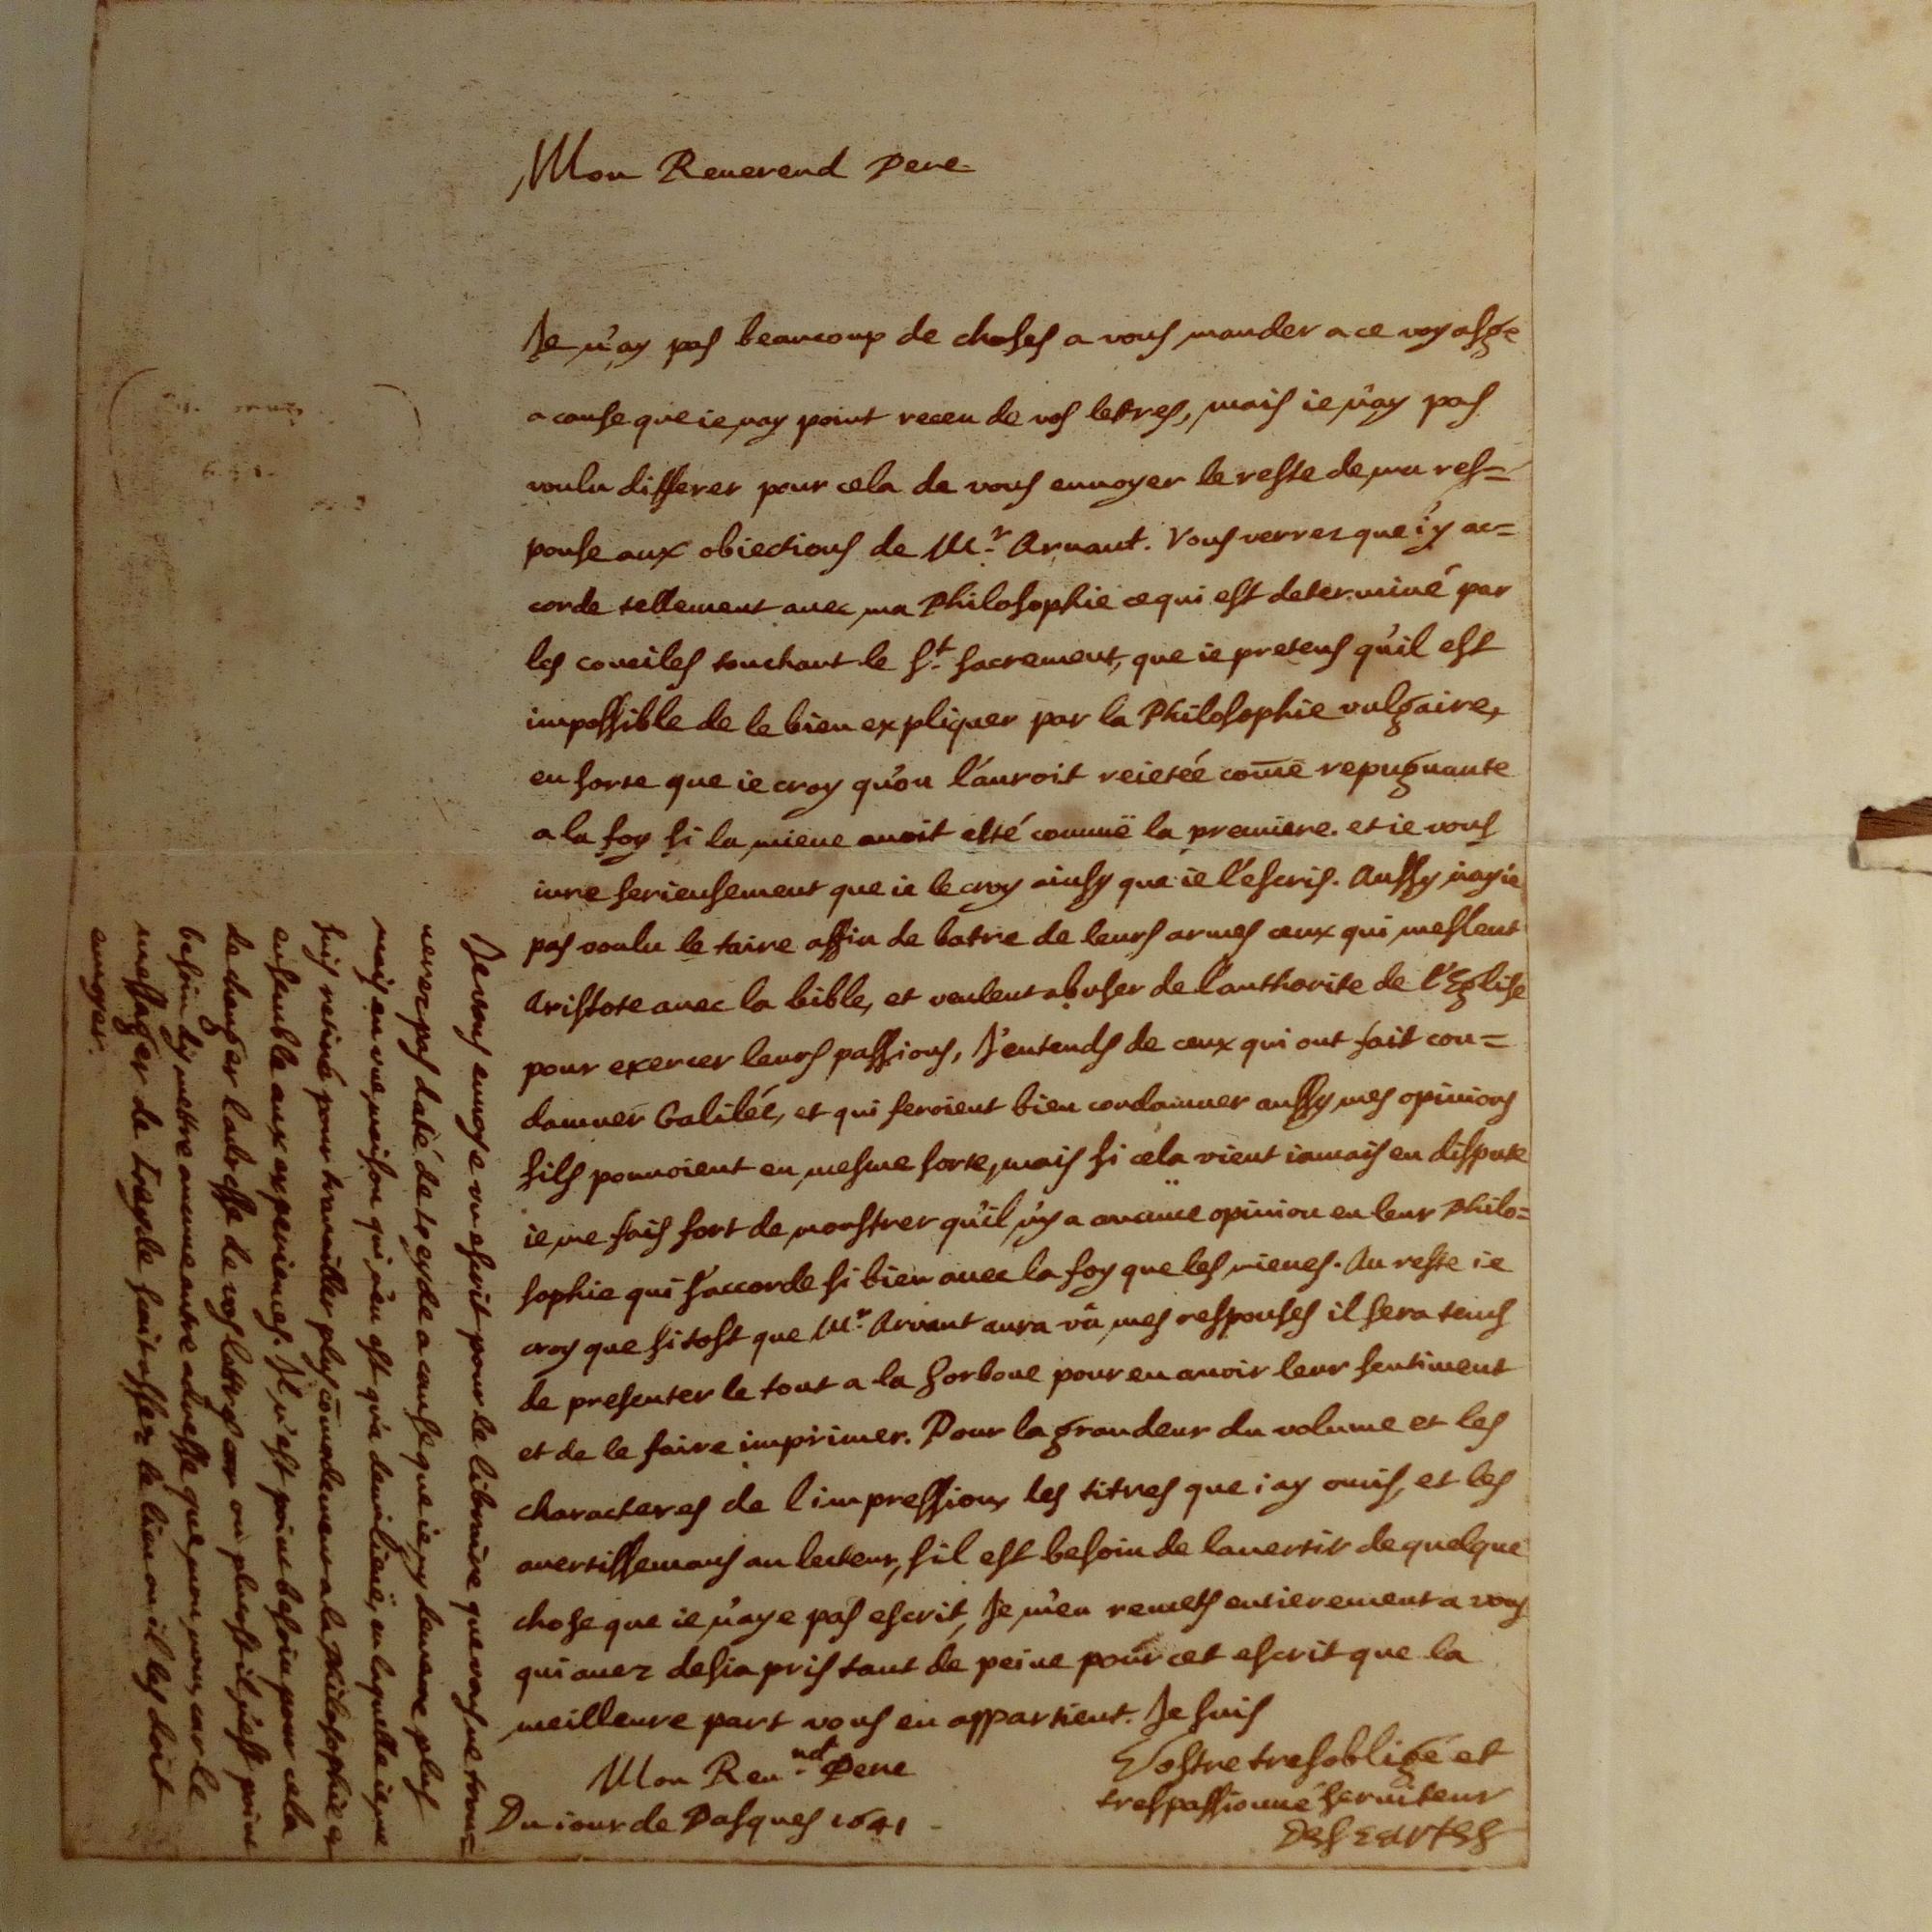 Mon Reuerend Pere
Je n'ay pas beaucoup de choses a vous mander a ce voyasge
a cause que ie nay point receu de vos lettres, mais ie n'ay pas
voulu differer pour cela de vous enuoyer le reste de ma res=
ponse aux obiections de Mr. Arnaut. Vous verrez que i'y ac=
corde tellement auec ma Philosophie ce qui est determiné par
les conciles touchant le St. sacrement, que ie pretens qu'il est
impossible de le bien expliquer par la Philosophie vulgaire,
en sorte que ie croy qu'on l'auroit reietée come repugnante
a la foy si la miene auoit esté connuë la premiere. et ie vous
iure serieusement que ie le croy ainsy que ie l'escris. Aussy n'ay ie
pas voulu le taire affin de batre de leurs armes ceux qui meslent
Aristote auec la bible, et veulent abuser de l'authorite de l'Eglise
pour exercer leurs passions, J'entends de ceux qui ont fait con=
damner Galilée, et qui feroient bien condamner aussy mes opinions
sils pouuoient en mesme sorte, mais si cela vient iamais en dispute
ie me fais fort de monstrer qu'il n'y a aucune opinion en leur Philo=
sophie qui s'accorde si bien auec la foy que les mienes. Au reste ie
croy que si tost que Mr. Arnaut aura vû mes responses il sera tems
de presenter le tout a la Sorbone pour en auoir leur sentiment
et de le faire imprimer. Pour la grandeur du volume et les
characteres de l'impression, les titres que i'ay omis, et les
auertissemans au lecteur, s'il est besoin de lauertir de quelque
chose que ie n'aye pas escrit, Je m'en remets entierement a vous
qui auez desia pris tant de peine pour cet escrit que la
meilleure part vous en appartient. Je suis
Mon Reu.nd Pere
Vostre tresobligé et
trespassionné seruiteur
Descartes
Du iour de Pasques 1641
Je vous enuoye vn escrit pour le libraire que vous ne trou=
uerez pas daté de Leyde a cause que ie n'y demeure plus
mais en vne maison qui n'en est qu'a demi lieuë, en laquelle ie me
suis retiré pour trauailler plus comodement a la Philosophie et
ensemble aux experiences. Il n'est point besoin pour cela
de changer ladresse de vos lettres ou plutost il n'est point
besoin d'y mettre aucune autre adresse que mon nom, car le
messager de Leyde sait assez le lieu ou il les doit
enuoyer.